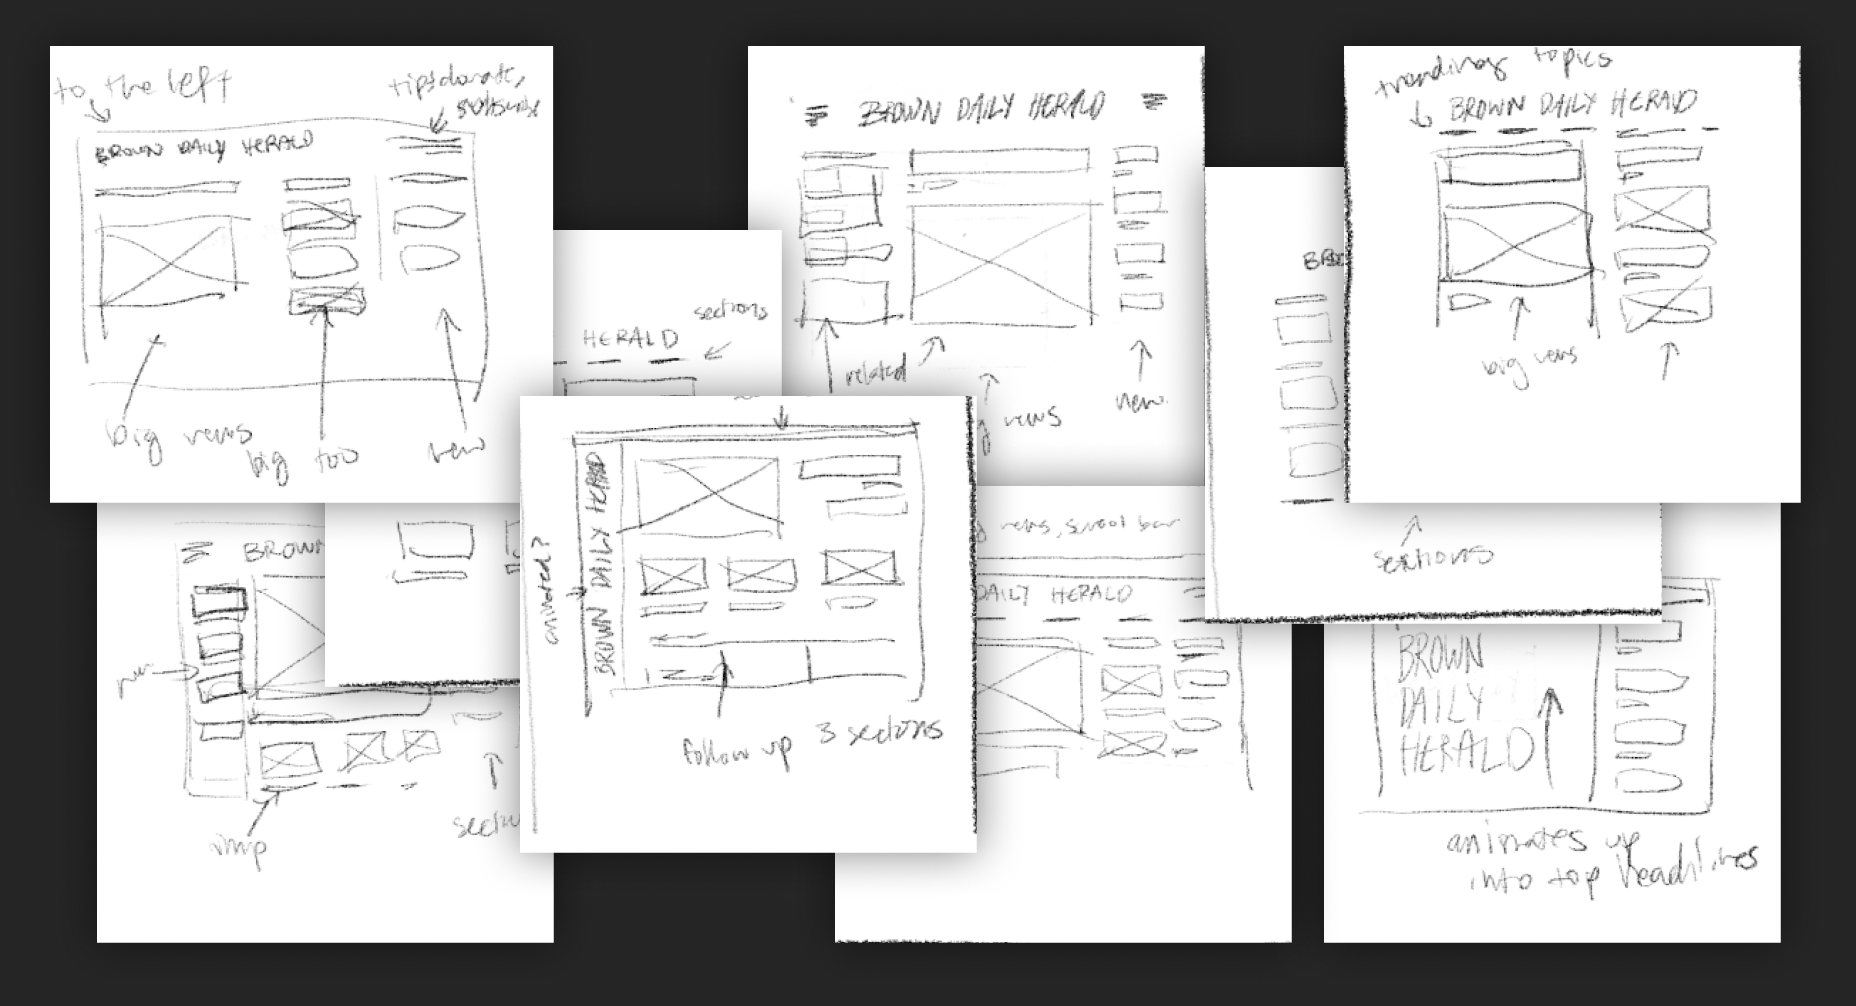 to the left
tips, donate,
subscribe
BROWN DAILY HERALD
big news
big too
new
HERALD
sections
BROWN DAILY HERALD
related
news
new
trending topics
BROWN DAILY HERALD
big news
sections
BROWN
imp
animated?
BROWN DAILY HERALD
follow up 3 sections
news, scroll bar
DAILY HERALD
BROWN
DAILY
HERALD
animates up
into top headlines